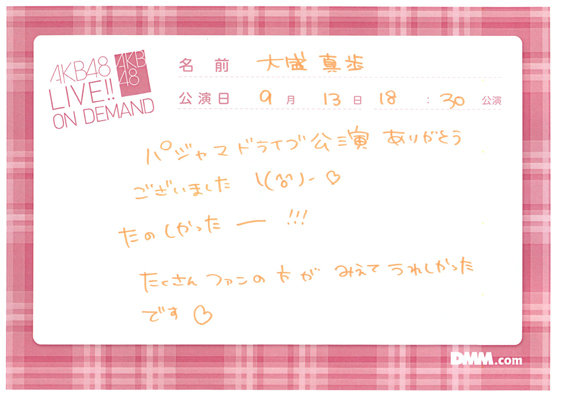 AKB48
LIVE!!
ON DEMAND
AKB
48
名前 大盛 真歩
公演日 9月 13日 18:30 公演
パジャマドライブ公演 ありがとう
ございました \(^o^)/ ♡
たのしかったー !!!
たくさん ファンの方が みえて うれしかった
です ♡
DMM.com